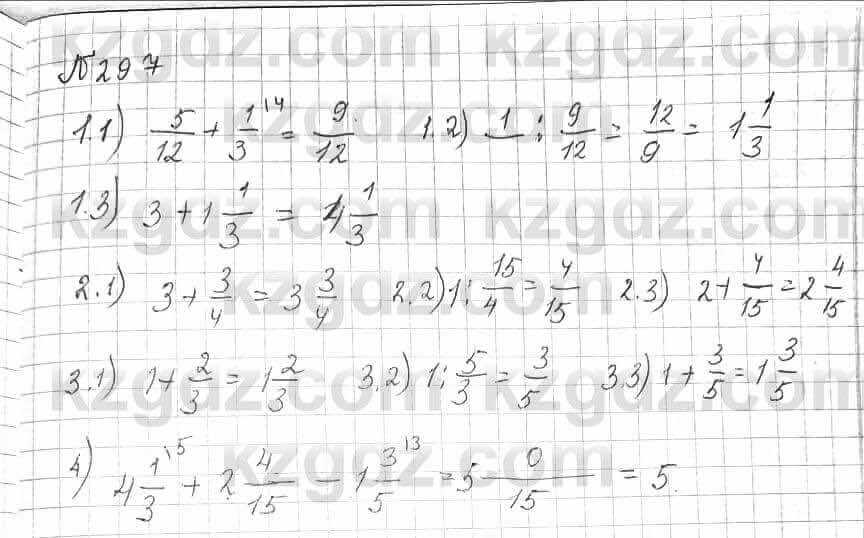 №297
1.1) 5/12 + 1/3 ¹⁴ = 9/12 1.2) 1 : 9/12 = 12/9 = 1 1/3
1.3) 3 + 1 1/3 = 4 1/3
2.1) 3 + 3/4 = 3 3/4 2.2) 1 : 15/4 = 4/15 2.3) 2 + 4/15 = 2 4/15
3.1) 1 + 2/3 = 1 2/3 3.2) 1 : 5/3 = 3/5 3.3) 1 + 3/5 = 1 3/5
4) 4 1/3 ⁱ⁵ + 2 4/15 - 1 3/5 ¹³ = 5 0/15 = 5.
kzgdz.com kzgdz.com
kzgdz.com kzgdz.com
kzgdz.com kzgdz.com
kzgdz.com kzgdz.com
kzgdz.com